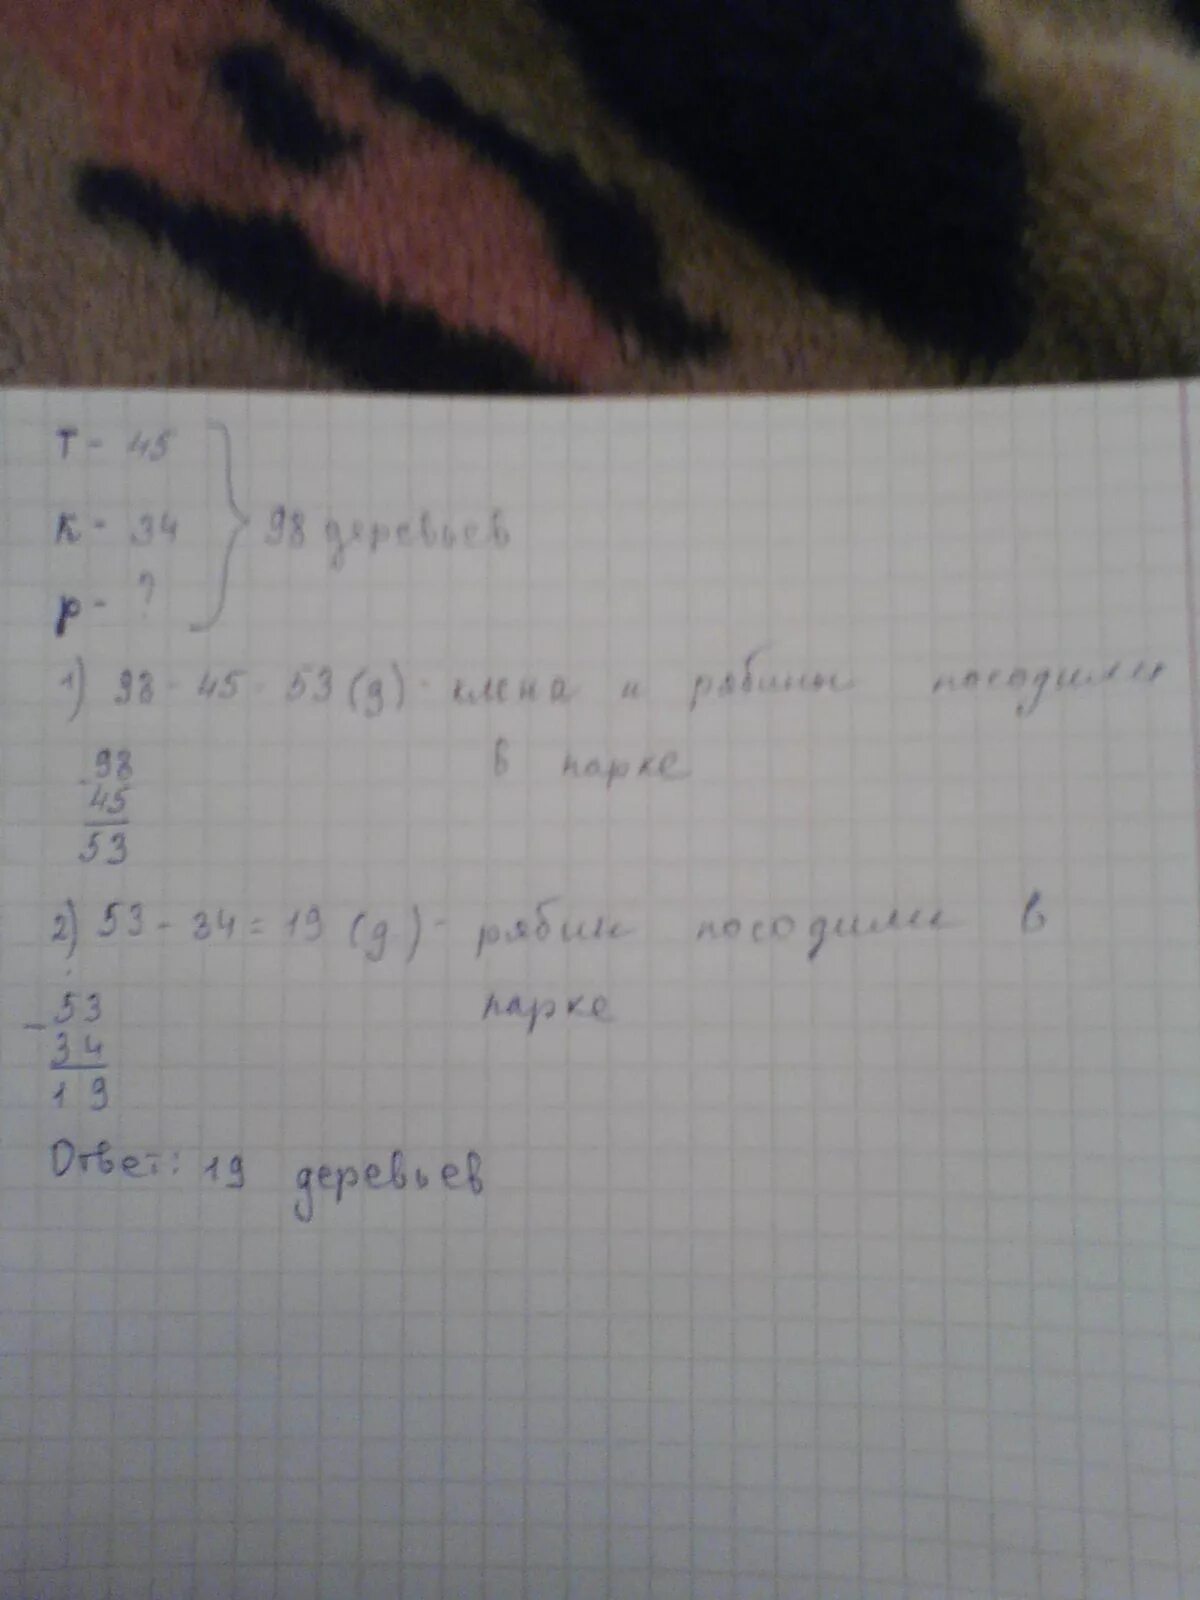 Т - 45
К - 34 98 деревьев
р - ?
1) 98 - 45 = 53 (д) - клена и рябины посодили
в парке
- 98
45
53
2) 53 - 34 = 19 (д) - рябин посодили в
парке
- 53
34
19
Ответ: 19 деревьев